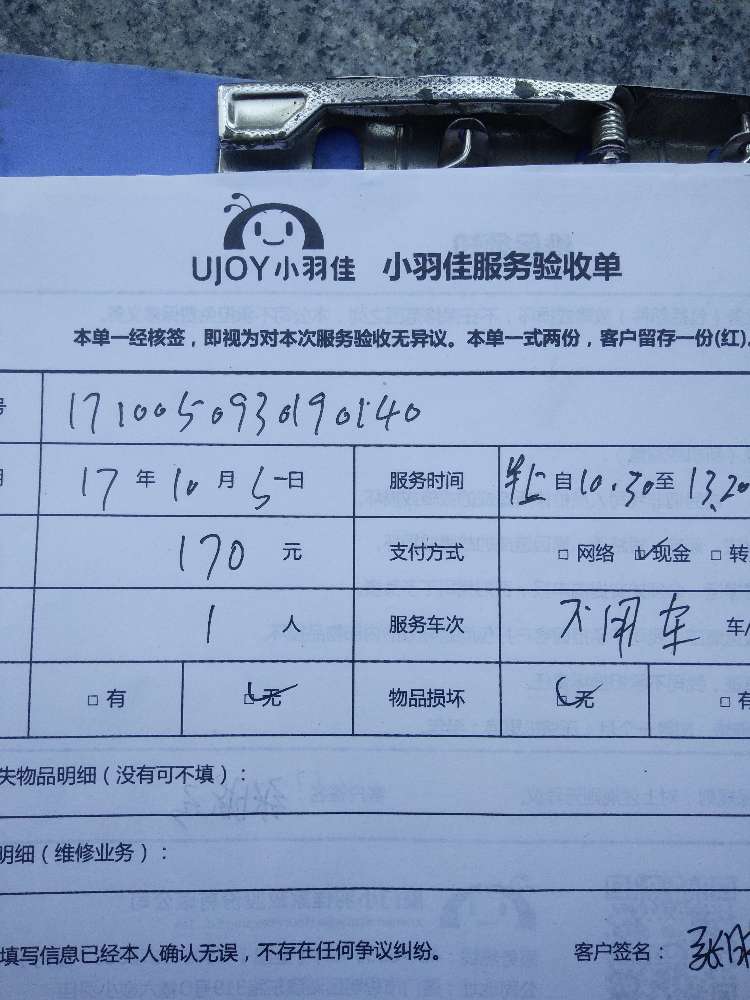 UJOY小羽佳 小羽佳服务验收单
本单一经核签，即视为对本次服务验收无异议。本单一式两份，客户留存一份(红)
号 1710050930190140
17 年 10 月 5 日 服务时间 自 10.30 至 13.20
170 元 支付方式 □ 网络 □ 现金 □ 转
1 人 服务车次 不用车 车
□ 有 □ 无 物品损坏 □ 无 □ 有
失物品明细（没有可不填）：
明细（维修业务）：
填写信息已经本人确认无误，不存在任何争议纠纷。 客户签名： 张